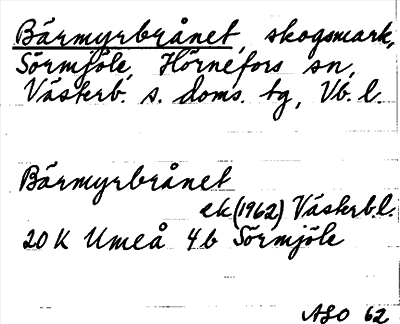 Bärmyrbrånet, skogsmark,
Sörmjöle, Hörnefors sn,
Västerb. s. doms. tg, Vb. l.
Bärmyrbrånet
ek (1962) Västerb.l.
20 K Umeå 4b Sörmjöle
ASO 62